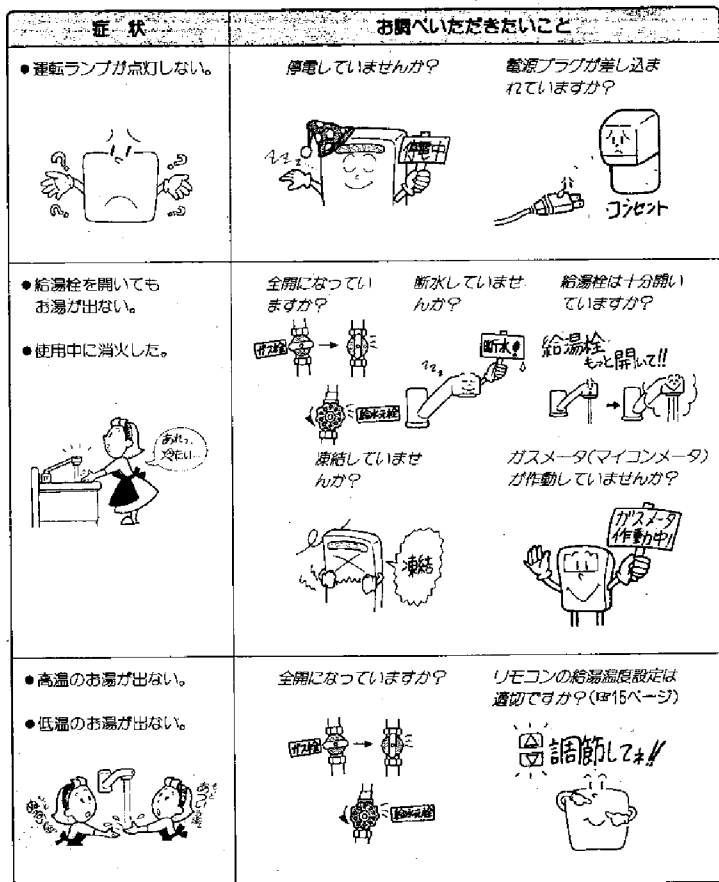 症状
お調べいただきたいこと
●運転ランプが点灯しない。
停電していませんか?
電源プラグが差し込ま
れていますか?
停電中
コンセント
●給湯栓を開いても
お湯が出ない。
●使用中に消火した。
あれっ、
冷たい…
全開になってい
ますか?
断水していませ
んか?
給湯栓は十分開い
ていますか?
ガス栓
断水!
給湯栓
もっと開いて!!
給水元栓
凍結していませ
んか?
ガスメータ(マイコンメータ)
が作動していませんか?
凍結
ガスメータ
作動中!!
●高温のお湯が出ない。
●低温のお湯が出ない。
全開になっていますか?
リモコンの給湯温度設定は
適切ですか?(☞15ページ)
ガス栓
給水元栓
調節してネ!!